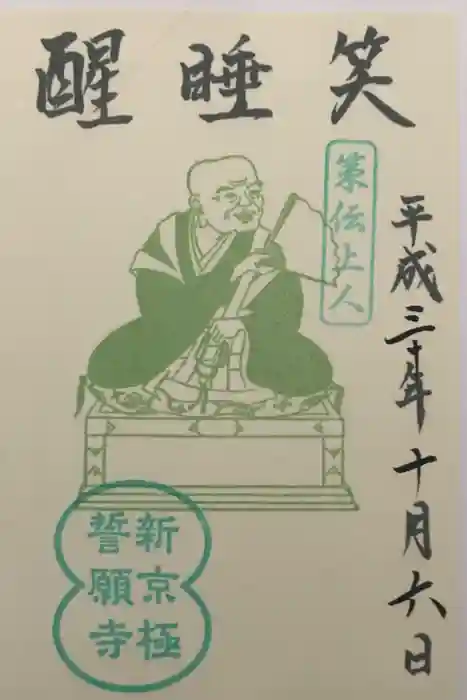 笑睡醒
策伝上人
平成三十年十月六日
新京極
誓願寺